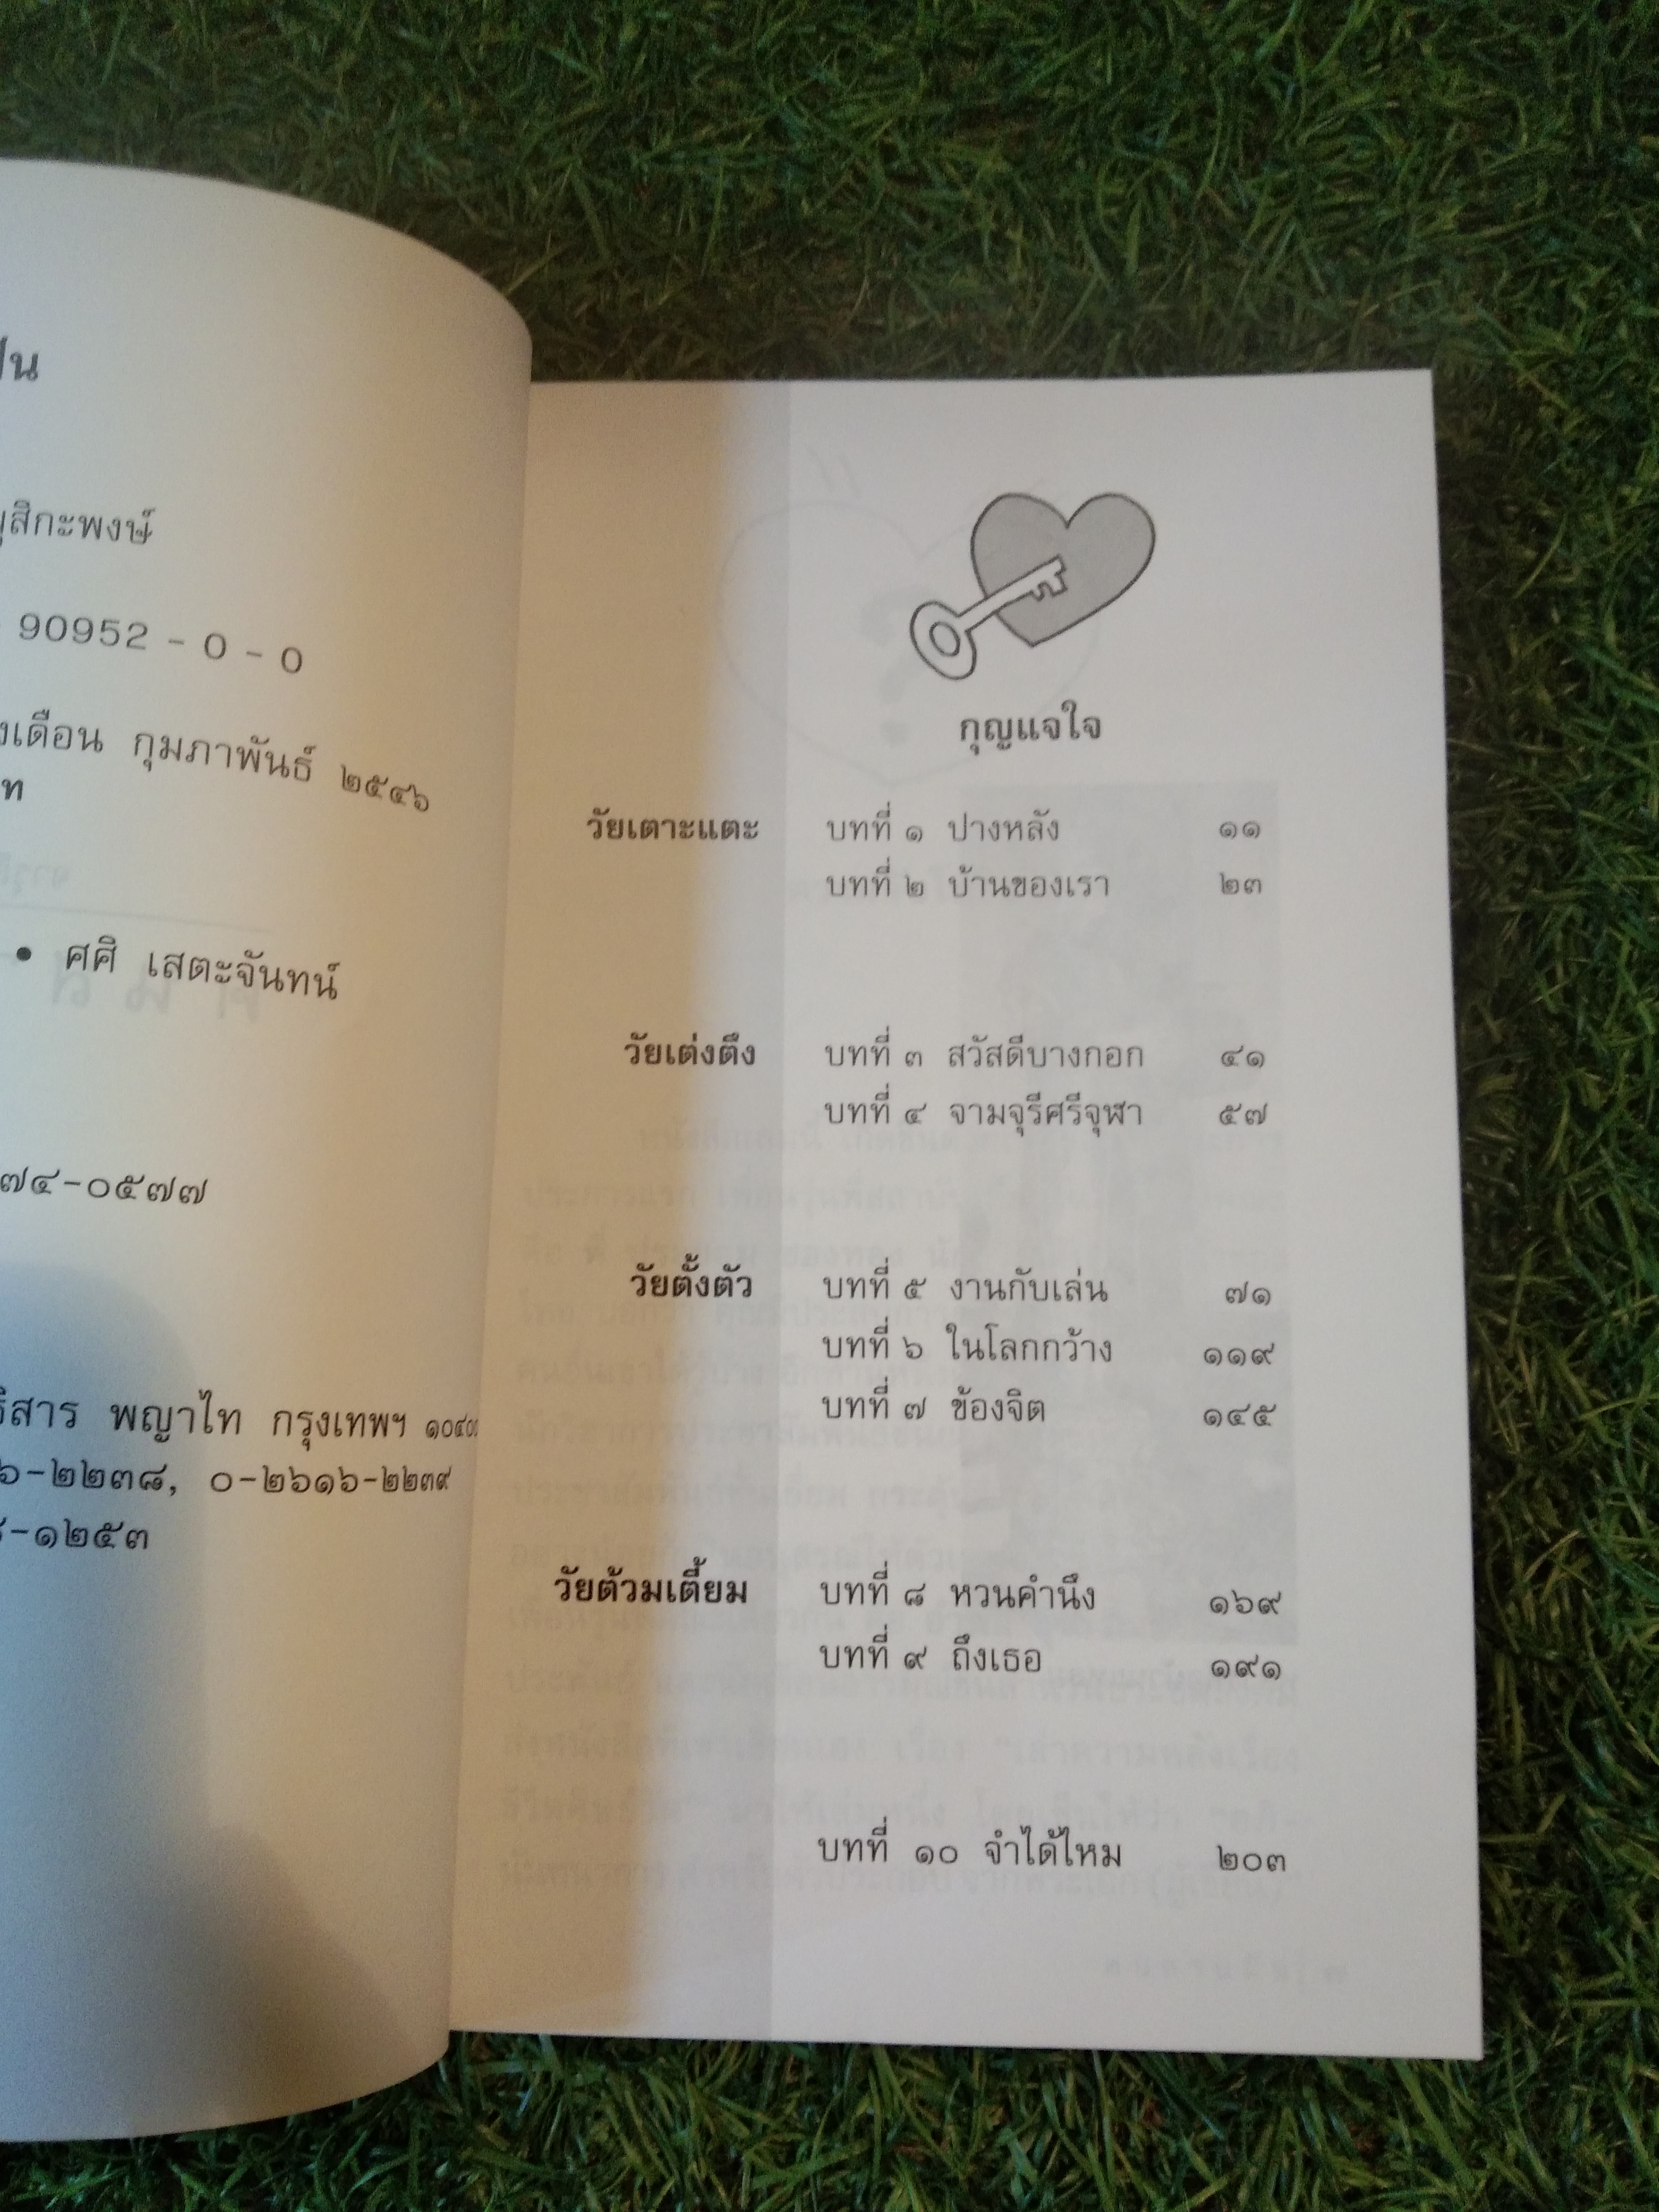 ปืน
สิกะพงษ์
90952 - 0 - 0
งเดือน กุมภาพันธ์ ๒๕๔๖
ท
• ศศิ เสตะจันทน์
๗๔-๐๕๗๗
ธิสาร พญาไท กรุงเทพฯ
๖-๒๒๓๘, ๐-๒๖๑๖-๒๒๓๙
-๑๒๕๓
กุญแจใจ
วัยเตาะแตะ บทที่ ๑ ปางหลัง ๑๑
บทที่ ๒ บ้านของเรา ๒๓
วัยเต่งตึง บทที่ ๓ สวัสดีบางกอก ๔๑
บทที่ ๔ จามจุรีศรีจุฬา ๕๗
วัยตั้งตัว บทที่ ๕ งานกับเล่น ๗๑
บทที่ ๖ ในโลกกว้าง ๑๑๙
บทที่ ๗ ข้องจิต ๑๔๕
วัยต้วมเตี้ยม บทที่ ๘ หวนคำนึง ๑๖๙
บทที่ ๙ ถึงเธอ ๑๙๑
บทที่ ๑๐ จำได้ไหม ๒๐๓